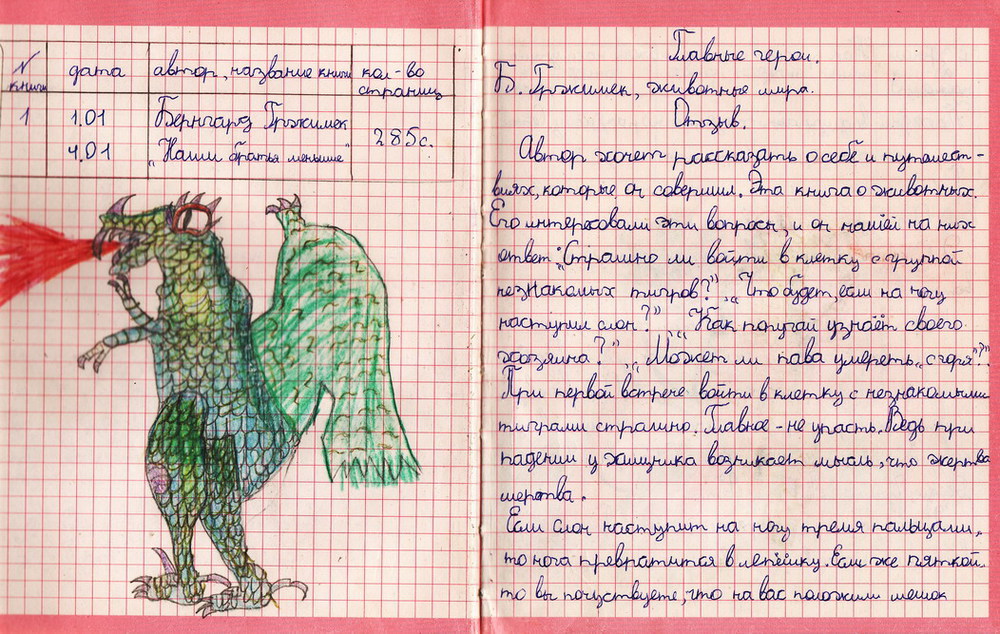 N книги дата автор, название книги кол-во страниц
1 1.01 Бернгард Гржимек 285с.
4.01 „Наши братья меньшие"
Главные герои.
Б. Гржимек, животные мира.
Отзыв.
Автор хочет рассказать о себе и путешест-
виях, которые он совершил. Эта книга о животных.
Его интересовали эти вопросы, и он нашёл на них
ответ: „Страшно ли войти в клетку с группой
незнакомых тигров?", „Что будет, если на ногу
наступил слон?", „Как попугай узнаёт своего
хозяина?", „Может ли пава умереть „с горя"?"
При первой встрече войти в клетку с незнакомыми
тиграми страшно. Главное - не упасть. Ведь при
падении у хищника возникает мысль, что жертва
мертва.
Если слон наступит на ногу тремя пальцами,
то нога превратится в лепёшку. Если же пяткой,
то вы почуствуете, что на вас положили мешок